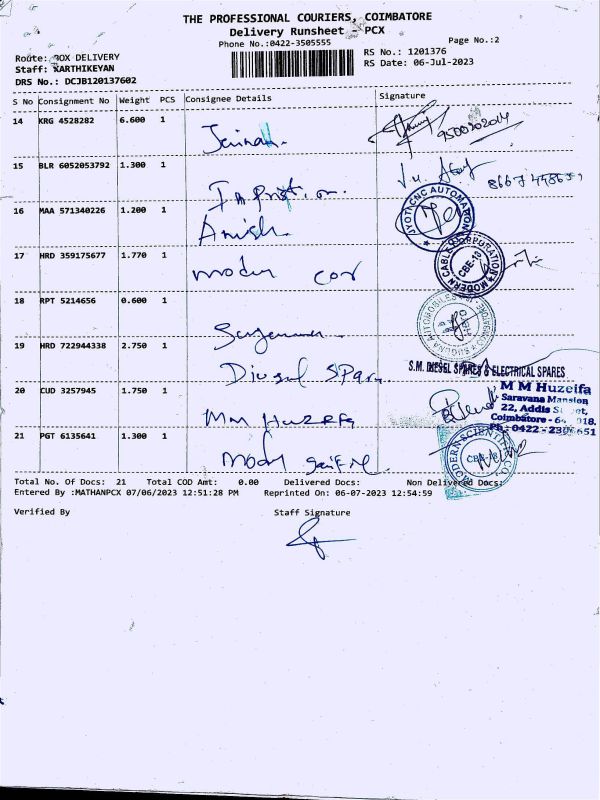 THE PROFESSIONAL COURIERS, COIMBATORE
Delivery Runsheet - PCX
Phone No.:0422-3505555
Page No.:2
Route: BOX DELIVERY
Staff: KARTHIKEYAN
DRS No.: DCJB120137602
RS No.: 1201376
RS Date: 06-Jul-2023
S No Consignment No Weight PCS Consignee Details Signature
14 KRG 4528282 6.600 1
9500202014
15 BLR 6052053792 1.300 1
16 MAA 571340226 1.200 1 Anish
JYOTI CNC AUTOMATION
17 HRD 359175677 1.770 1 modern cor
MODERN CABLE CORPORATION
CBE-18
18 RPT 5214656 0.600 1
19 HRD 722944338 2.750 1 Diesel Spares
S.M. DIESEL SPARES & ELECTRICAL SPARES
20 CUD 3257945 1.750 1 MM HUZEFA
M M Huzeifa
Saravana Mansion
22, Addis Street,
Coimbatore - 018.
Ph : 0422 - 651
21 PGT 6135641 1.300 1
MODERN SCIENTIFIC CO.
CBE-18
Total No. Of Docs: 21 Total COD Amt: 0.00 Delivered Docs: Non Delivered Docs:
Entered By :MATHANPCX 07/06/2023 12:51:28 PM Reprinted On: 06-07-2023 12:54:59
Verified By Staff Signature